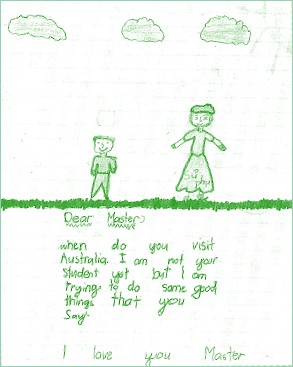 Dear Master,
when do you visit
Australia. I am not your
student yet but I am
trying to do some good
things that you
say.
I love you Master